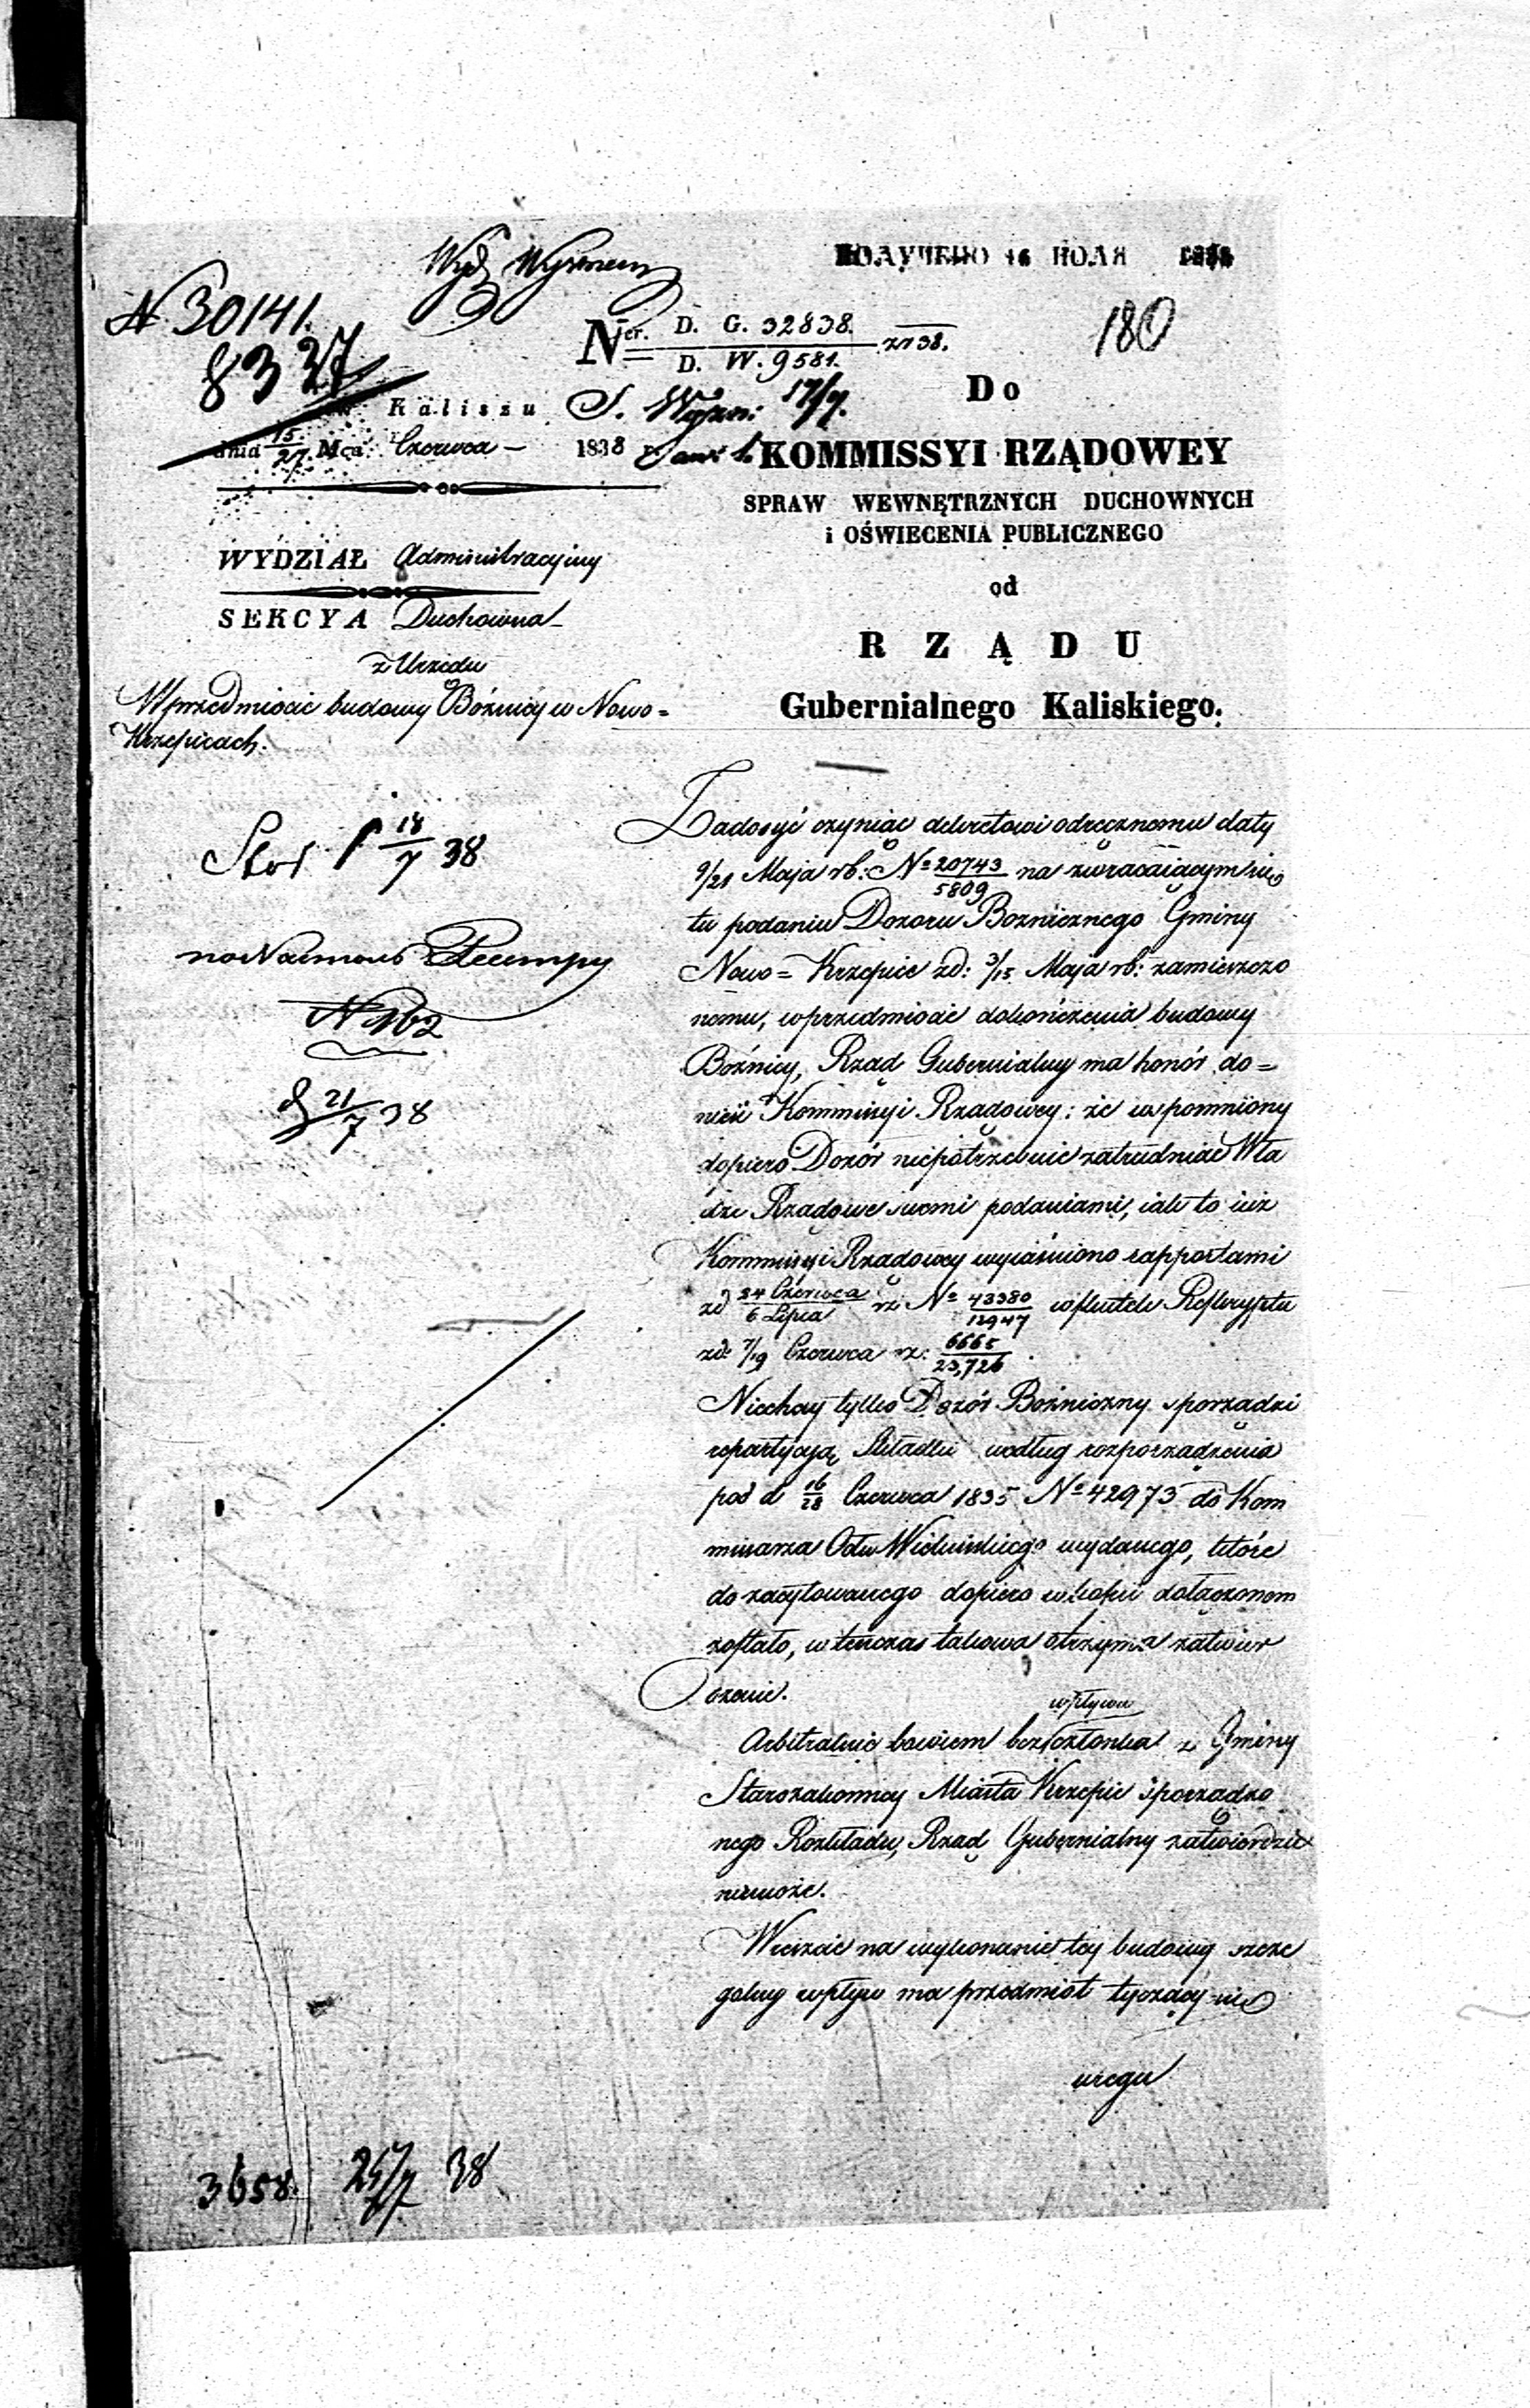 Wyd. Wyznań
ПОЛУЧЕНО 16 ІЮЛЯ 1838
N. 30141.
8327
180
Ner. D. G. 32838. / D. W. 9581. z r 38.
w Kaliszu
S. Wyzn: 17/7.
dnia 15/27 Mca Czerwca – 1838 r.
Do
KOMMISSYI RZĄDOWEY
SPRAW WEWNĘTRZNYCH DUCHOWNYCH
i OŚWIECENIA PUBLICZNEGO
od
RZĄDU
Gubernialnego Kaliskiego.
WYDZIAŁ Administracyiny
SEKCYA Duchowna
z Urzędu
W przedmiocie budowy Bóżnicy w Nowo=
Krzepicach.
18/7 38
N 162
21/7 38
Zadosyć czyniąc dekretowi odręcznemu daty
9/21 Maja rb: No 20743/5809 na zwracaiącym się
tu podaniu Dozoru Bożnicznego Gminy
Nowo= Krzepic zd: 3/15 Maja rb: zamieszczo
nemu, w przedmiocie dokończenia budowy
Bożnicy, Rząd Gubernialny ma honór do=
nieść Kommissyi Rządowey: że wspomniony
dopiero Dozór niepotrzebnie zatrudniać Wła
dze Rządowe swemi podaniami, iak to iuż
Kommissyi Rządowey wyiaśniono rapportami
zd 24 Czerwca/6 Lipca rz No 43380/12947 w skutek Reskryptu
zd: 7/19 Czerwca rz: 6665/23,726.
Niechay tylko Dozór Bożniczny sporządzi
repartycyą Składki według rozporządzenia
pod d 16/28 Czerwca 1835 No 42973 do Kom
missarza Obdu Wieluńskiego wydanego, które
do zacytowanego dopiero w kopii dołączonem
zostało, w tenczas takowa otrzyma zatwier
dzenie.
wpływu
Arbitralnie bowiem bez członka z Gminy
Starozakonney Miasta Krzepic sporządzo
nego Rozkładu, Rząd Gubernialny zatwierdzić
niemoże.
Wreszcie na wykonanie tey budowy szcze
gólny wpływ ma przedmiot tyczący się
uregu
3658. 24/7 38